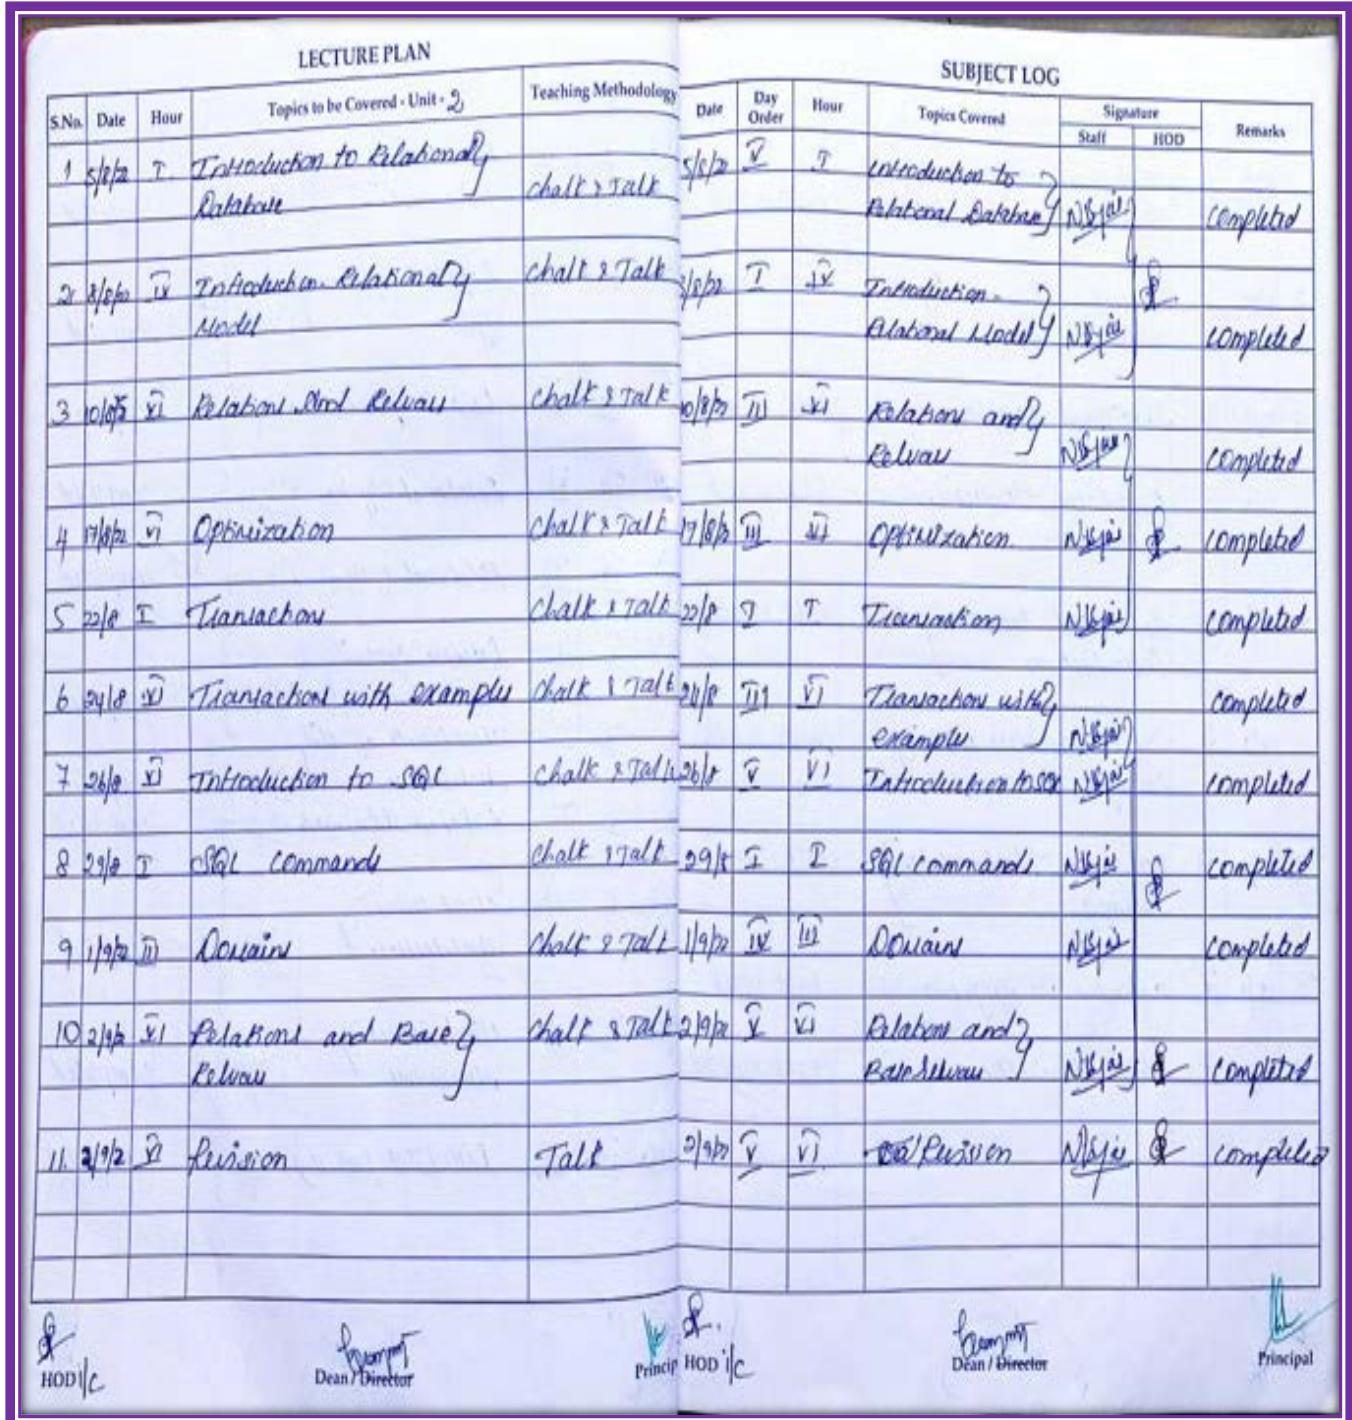 LECTURE PLAN
S.No. Date Hour Topics to be Covered - Unit - 2 Teaching Methodology
1 5/8/22 I Introduction to Relational
Database Chalk & Talk
2 8/8/22 IV Introduction. Relational Chalk & Talk
Model
3 10/8/22 VI Relations And Relvars Chalk & Talk
4 17/8/22 VI Optimization Chalk & Talk
5 22/8 I Transactions Chalk & Talk
6 24/8 VI Transactions with examples Chalk & Talk
7 26/8 VI Introduction to SQL Chalk & Talk
8 29/8 I SQL commands Chalk & Talk
9 1/9/22 III Domains Chalk & Talk
10 2/9/2 VI Relations and Base Chalk & Talk
Relvars
11. 2/9/2 VI Revision Talk
HOD i/c Dean / Director Princip
SUBJECT LOG
Date Day Order Hour Topics Covered Signature Remarks
Staff HOD
5/8/22 V I Introduction to
Relational Database completed
8/8/22 I IV Introduction.
Relational Model completed
10/8/22 III VI Relations and
Relvars completed
17/8/22 III VI Optimization completed
22/8 I I Transaction completed
24/8 III VI Transactions with completed
examples
26/8 V VI Introduction to SQL completed
29/8 I I SQL commands completed
1/9/22 IV III Domains completed
2/9/22 V VI Relations and
Base Relvars completed
2/9/22 V VI Revision completed
HOD i/c Dean / Director Principal